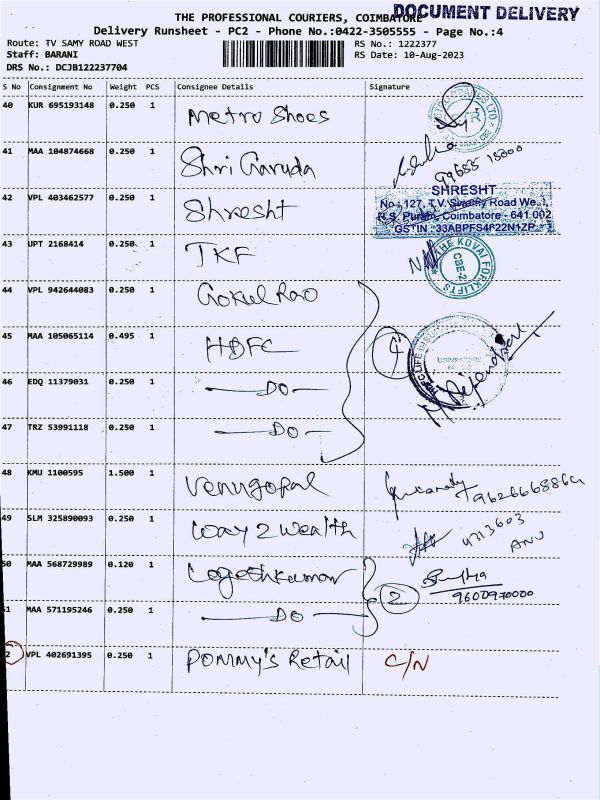 THE PROFESSIONAL COURIERS, COIMBATORE
DOCUMENT DELIVERY
Delivery Runsheet - PC2 - Phone No.:0422-3505555 - Page No.:4
Route: TV SAMY ROAD WEST RS No.: 1222377
Staff: BARANI RS Date: 10-Aug-2023
DRS No.: DCJB122237704
S No Consignment No Weight PCS Consignee Details Signature
40 KUR 695193148 0.250 1 Metro Shoes
41 MAA 104874668 0.250 1 Shri Garuda 99655 15000
42 VPL 403462577 0.250 1 Shresht
SHRESHT
No. 127, T.V. Swamy Road West,
R.S. Puram, Coimbatore - 641 002
43 UPT 2168414 0.250 1 TKF
THE KOVAI FORKLIFTS
CBE-2
44 VPL 942644083 0.250 1 Gokul Rao
45 MAA 105065114 0.495 1 HDFC 4
HDFC LIFE
46 EDQ 11379031 0.250 1 DO
47 TRZ 53991118 0.250 1 DO
48 KMU 1100595 1.500 1 Venugopal
49 SLM 325890093 0.250 1 Way 2 Wealth 4313603
ANU
50 MAA 568729989 0.120 1 Logeshkumar 2
9600970000
51 MAA 571195246 0.250 1 DO
2 VPL 402691395 0.250 1 Pommy's Retail C/N